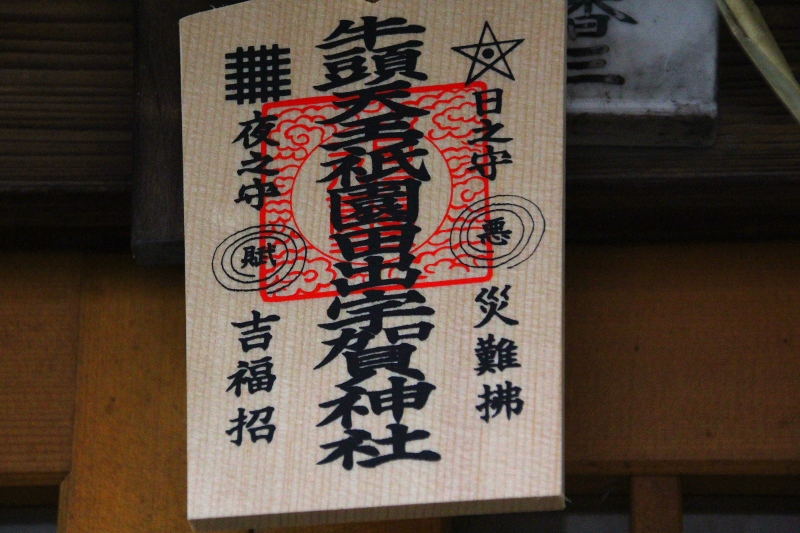 日之守 悪 災難拂
牛頭天王祇園田出宇賀神社
夜之守 賦 吉福招